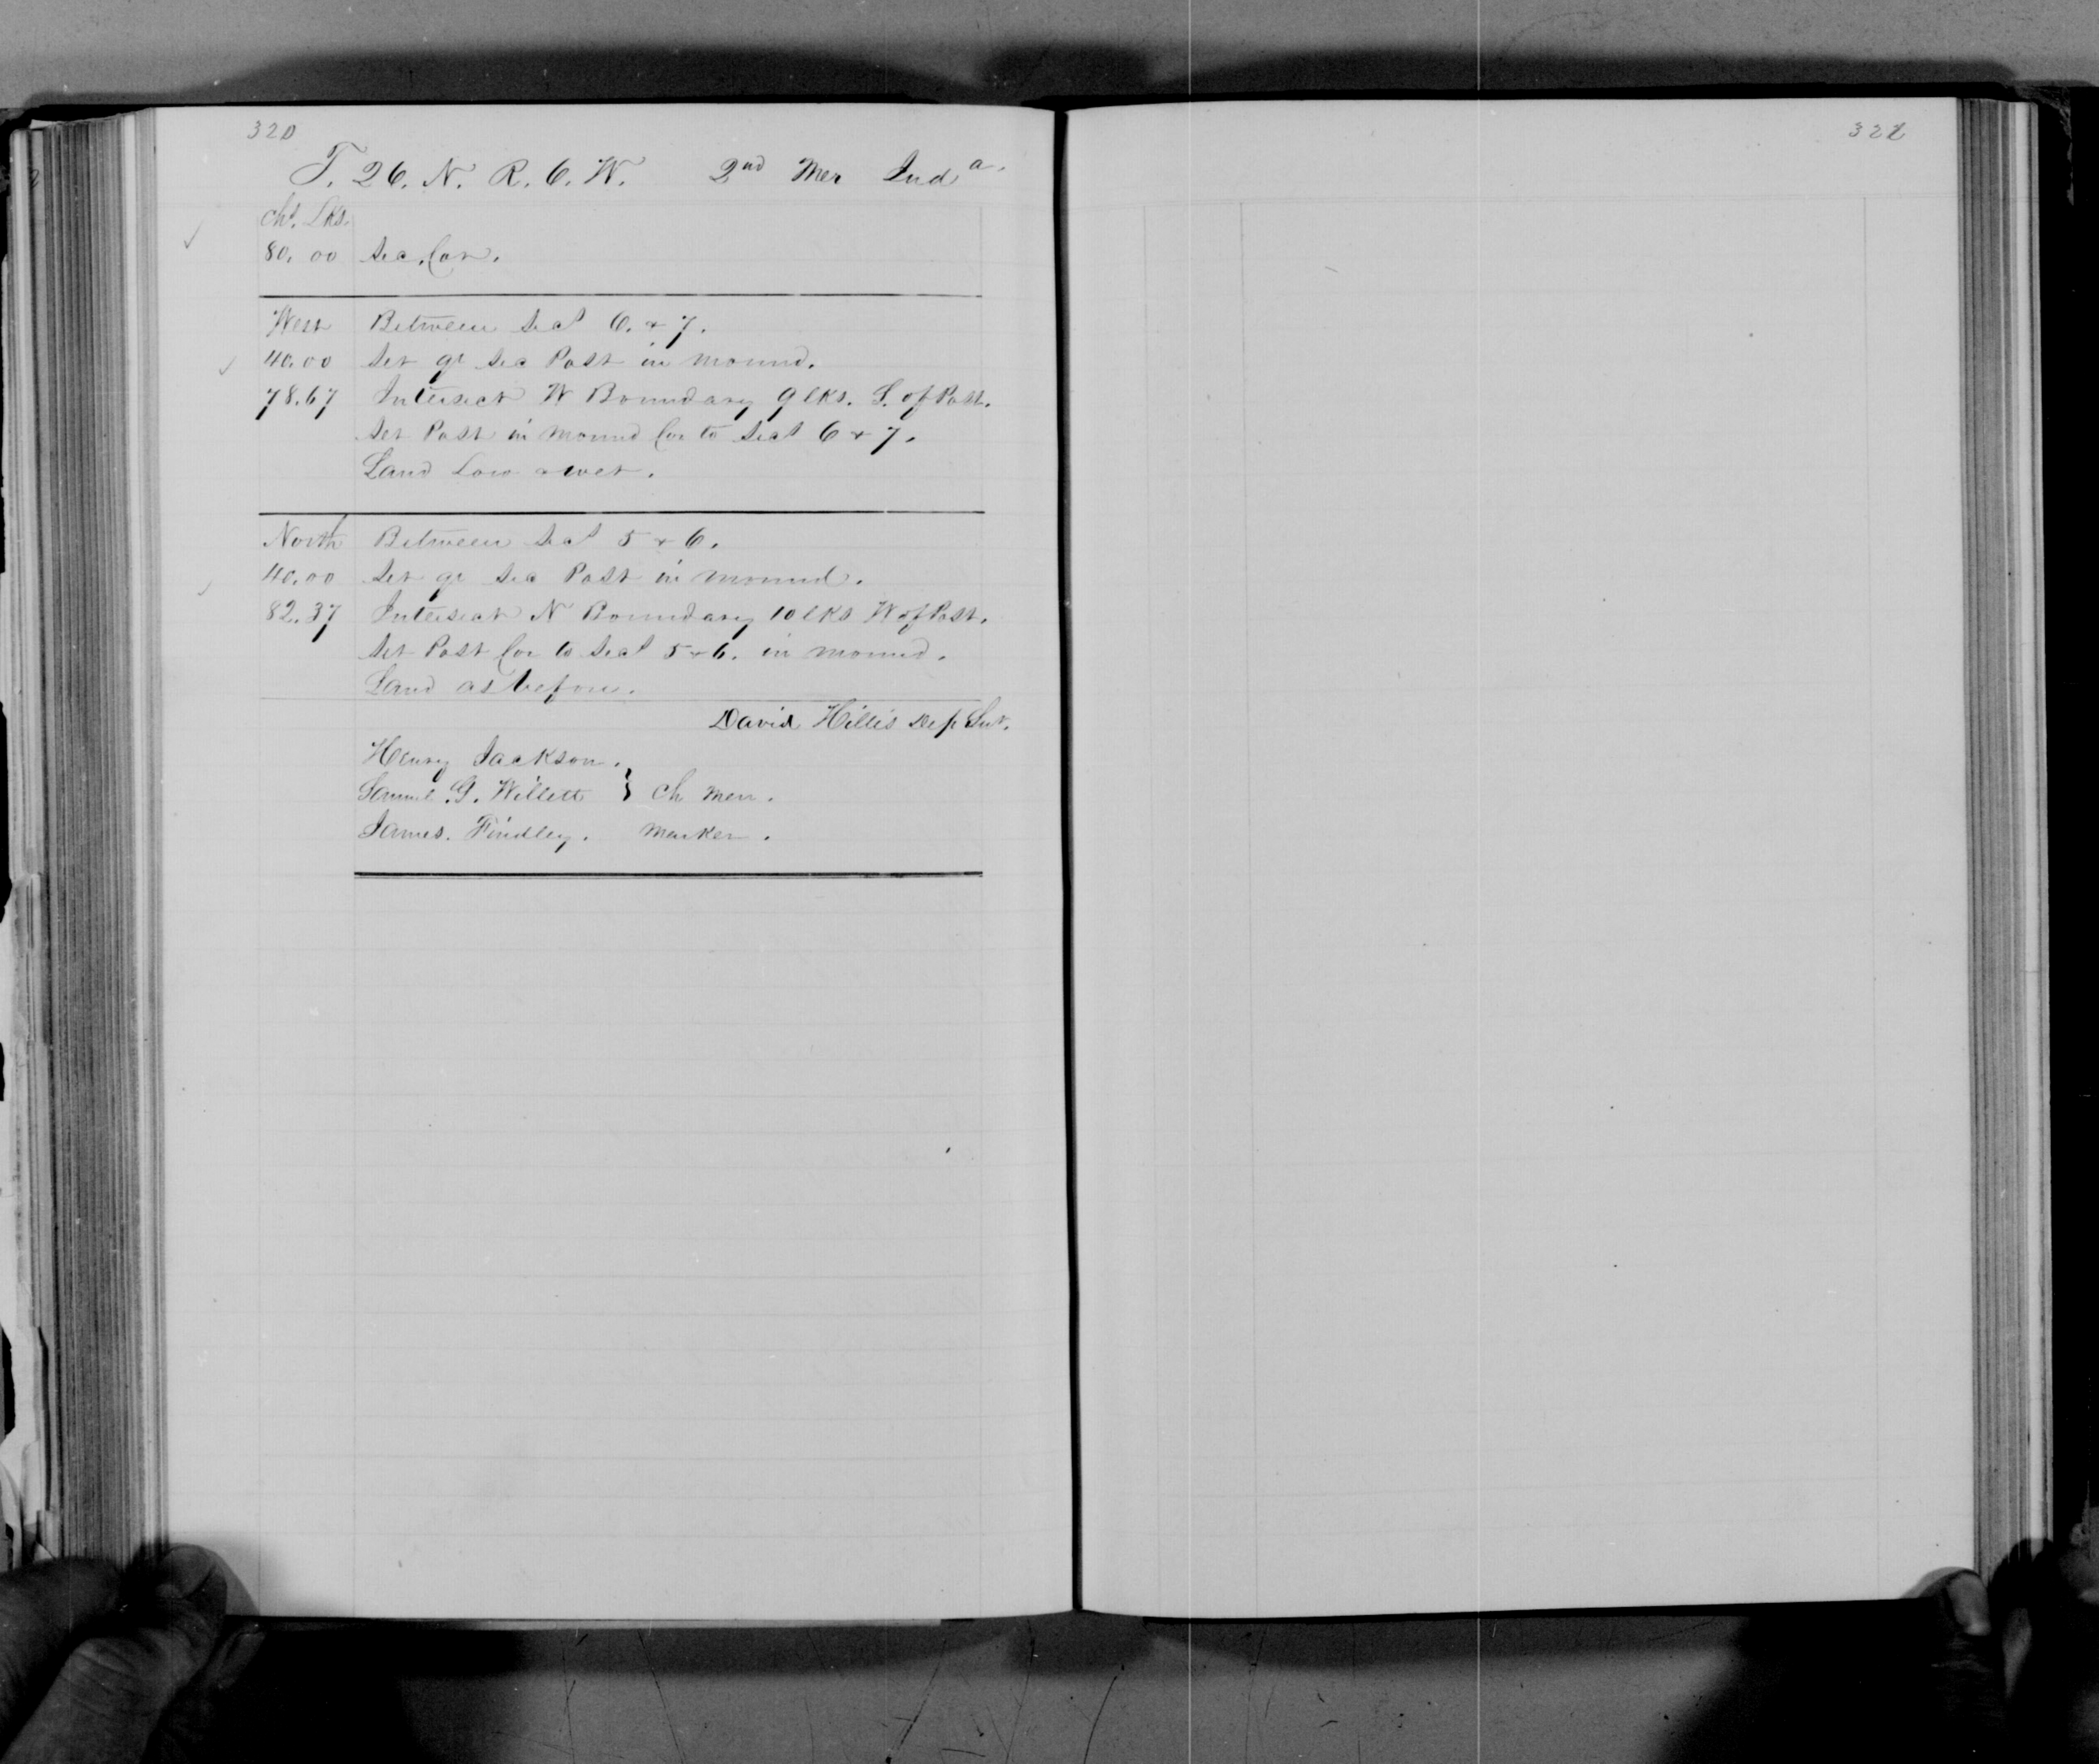 320
T. 26. N. R. 6. W. 2nd Mer Inda.
Chs. Lks.
80.00 Sec. Cor.
West Between Secs 6. & 7.
40.00 Set qr Sec Post in mound.
78.67 Intersect W Boundary 9 lks. S. of Post.
Set Post in mound Cor to Secs 6 & 7.
Land Low & wet.
North Between Secs 5 & 6.
40.00 Set qr Sec Post in mound.
82.37 Intersect N Boundary 10 lks W of Post.
Set Post Cor to Secs 5 & 6. in mound.
Land as before.
David Hillis Dep Sur.
Henry Jackson.
Samuel. G. Willett } Ch men.
James. Findley. Marker.